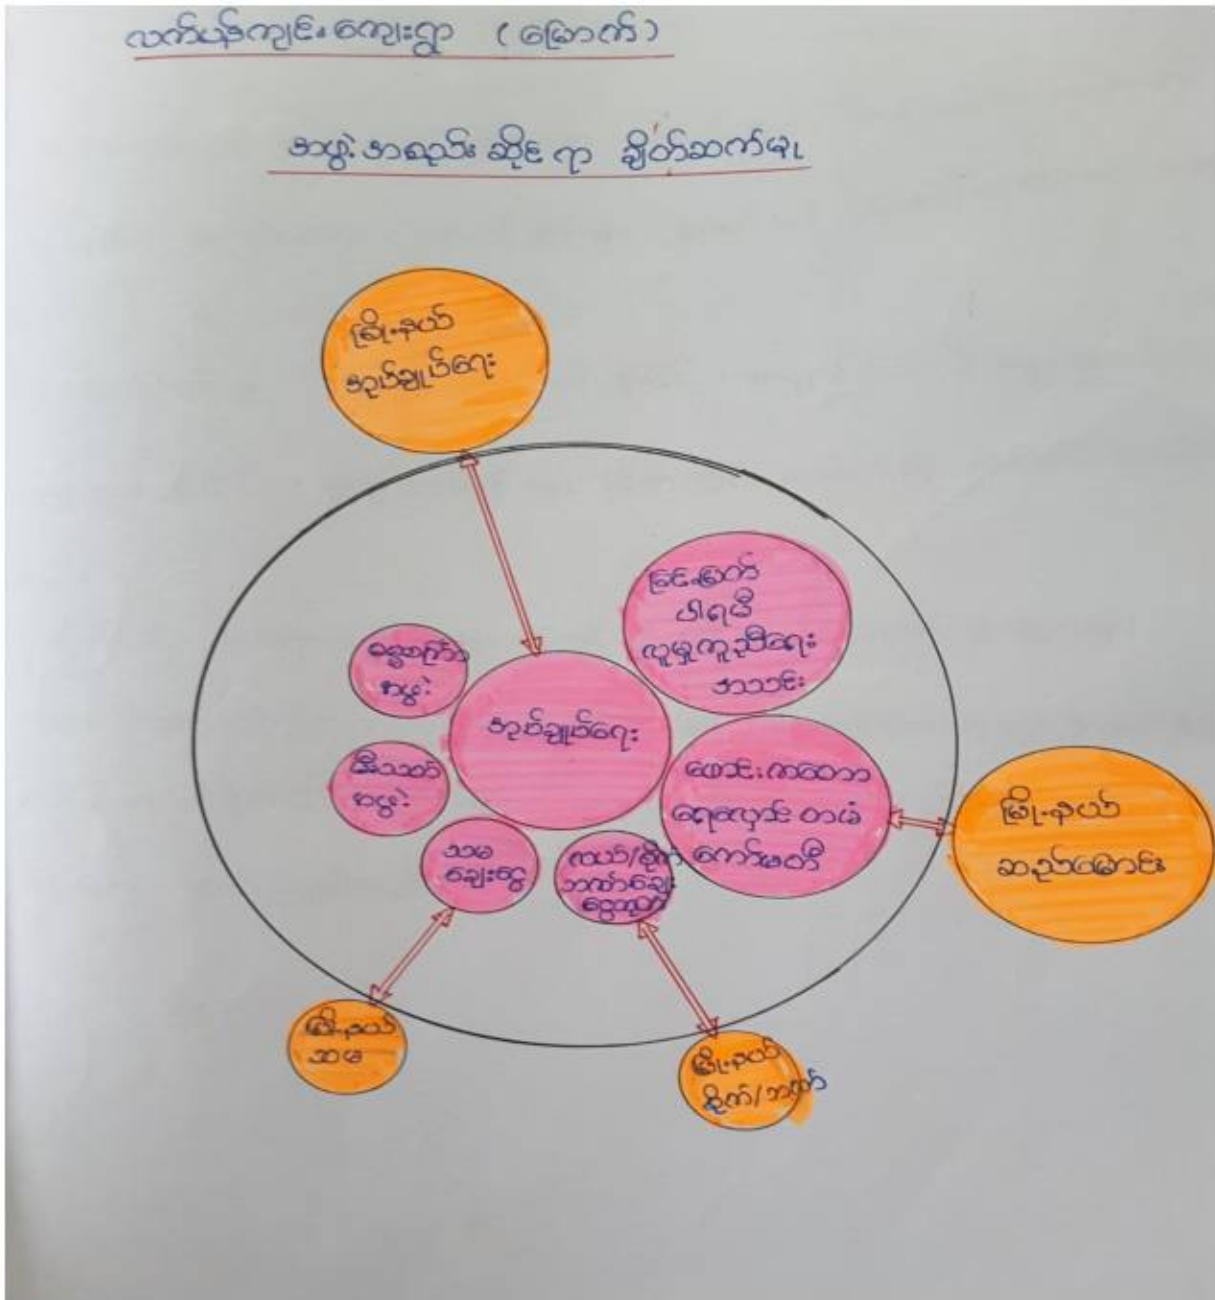 လက်ပန်ကျင်းကျေးရွာ (မြောက်)
အဖွဲ့အစည်းဆိုင်ရာ ချိတ်ဆက်မှု
မြို့နယ်
အုပ်ချုပ်ရေး
မြင်းမြက်
ပါရမီ
လူမှုကူညီရေး
အသင်း
အဖွဲ့
အုပ်ချုပ်ရေး
မီးသတ်
အဖွဲ့
ဖောင်းကတော
ရေလှောင်တမံ
ကော်မတီ
မြို့နယ်
ဆည်မြောင်း
သမ
ချေးငွေ
လယ်/စိုက်
ဘဏ်ချေး
ငွေ
မြို့နယ်
သမ
မြို့နယ်
စိုက်/ဘဏ်